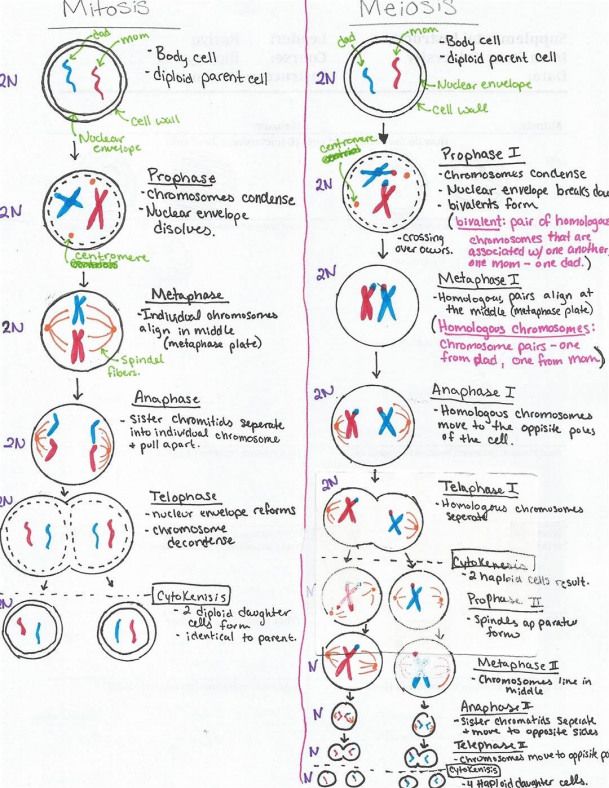 Mitosis
dad
mom
2N
- Body cell
- diploid parent cell
Cell wall
Nuclear
envelope
2N
Prophase
- Chromosomes condense
- Nuclear envelope
disolves.
centromere
2N
Metaphase
- Individual chromosomes
align in middle
(metaphase plate)
Spindel
fibers.
2N
Anaphase
- Sister chromitids seperate
into individual chromosome
+ pull apart.
2N
Telophase
- nuclear envelope reforms
- chromosome
decondense
2N
Cytokenisis
- 2 diploid daughter
cells form
- identical to parent.
Meiosis
dad
mom
2N
- Body cell
- diploid parent cell
Nuclear envelope
Cell wall
centromere
2N
Prophase I
- Chromosomes condense
- Nuclear envelope breaks dow
- bivalents form
(bivalent: pair of homologous
chromosomes that are
associated w/ one another,
one mom - one dad.)
- crossing
over occurs.
2N
Metaphase I
- Homologous pairs align at
the middle (metaphase plate)
(Homologous chromosomes:
Chromosome pairs - one
from dad, one from mom)
2N
Anaphase I
- Homologous chromosomes
move to the opposite poles
of the cell.
2N
Telaphase I
- Homologous chromosomes
seperate
Cytokenesis
- 2 haploid cells result.
N
Prophase II
- Spindles apparatus
forms
N
Metaphase II
- Chromosomes line in
middle
N
Anaphase II
- Sister chromatids seperate
+ move to opposite sides
N
Telephase II
- Chromosomes move to opposite po
Cytokenisis
N
- 4 Haploid daughter cells.